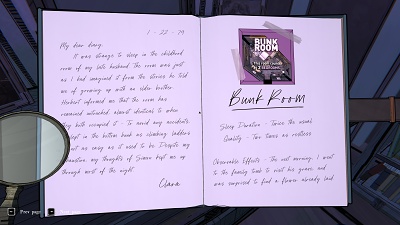 1 - 22 - 79
My dear diary,
It was strange to sleep in the childhood
room of my late husband. The room was just
as I had imagined it from the stories he told
me of growing up with an older brother.
Herbert informed me that the room has
remained untouched, almost identical to when
they both occupied it - To avoid any accidents,
I slept in the bottom bunk as climbing ladders
not as easy as it used to be. Despite my
exhaustion, my thoughts of Simon kept me up
through most of the night.
Clara
BUNK
ROOM
This room counts
as 2 rooms
Bunk Room
Sleep Duration - Twice the usual
Quality - Two times as restless
Observable Effects - The next morning, I went
to the family tomb to visit his grave, and
was surprised to find a flower already laid
Prev page